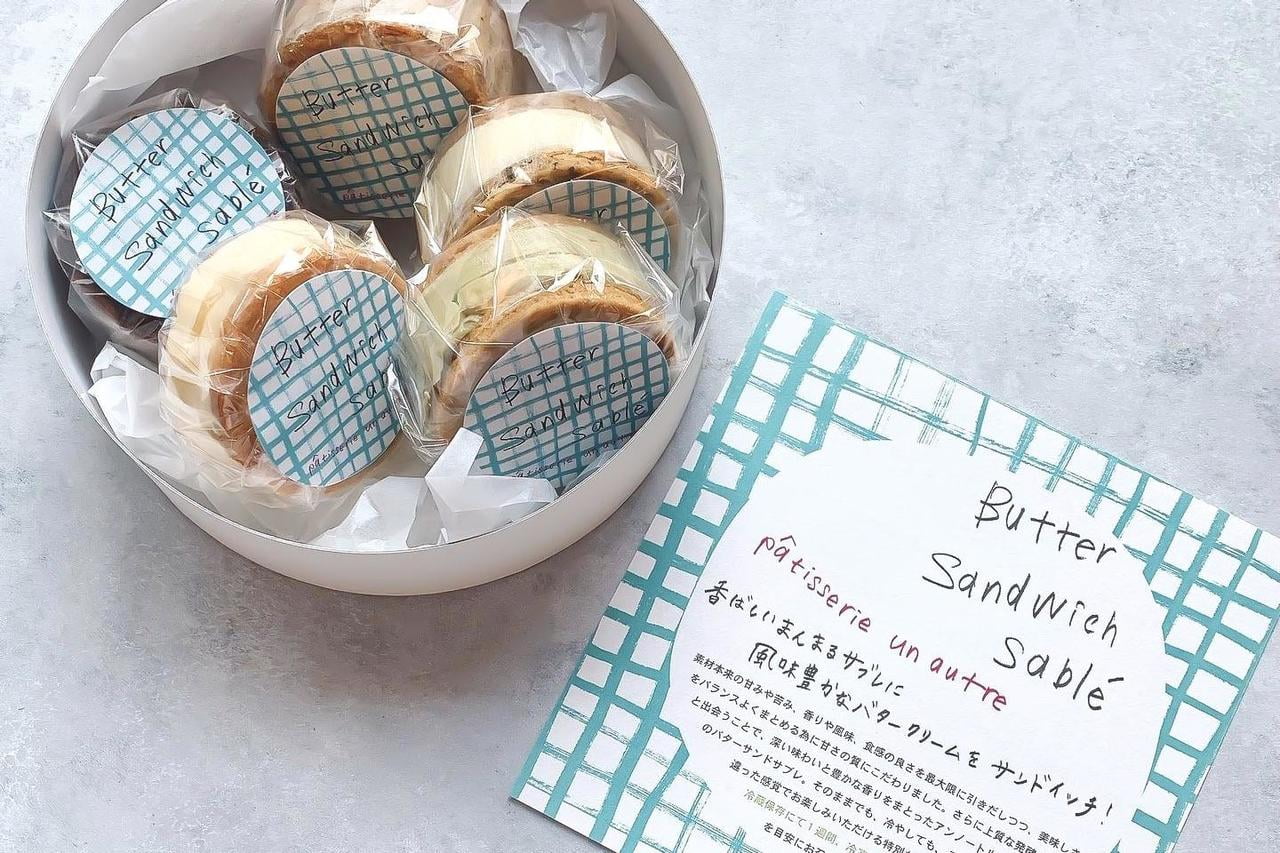 Butter
Sandwich
sa
pâtisserie
Butter
Sandwich
sablé
Butter
Sandwich
sa
pâtisserie un au
Butter
Sandwich
sablé
pâtisserie un
Butter
Sandwich
sablé
pâtisserie un autre
香ばしいまんまるサブレに
風味豊かなバタークリームをサンドイッチ!
素材本来の甘みや苦み、香りや風味、食感の良さを最大限に引きだしつつ、美味しさ
をバランスよくまとめる為に甘さの質にこだわりました。さらに上質な発酵
と出会うことで、深い味わいと豊かな香りをまとったアンノートル
のバターサンドサブレ。そのままでも、冷やしても、
違った感覚でお楽しみいただける特別な
冷蔵保存にて1週間、冷
を目安にお